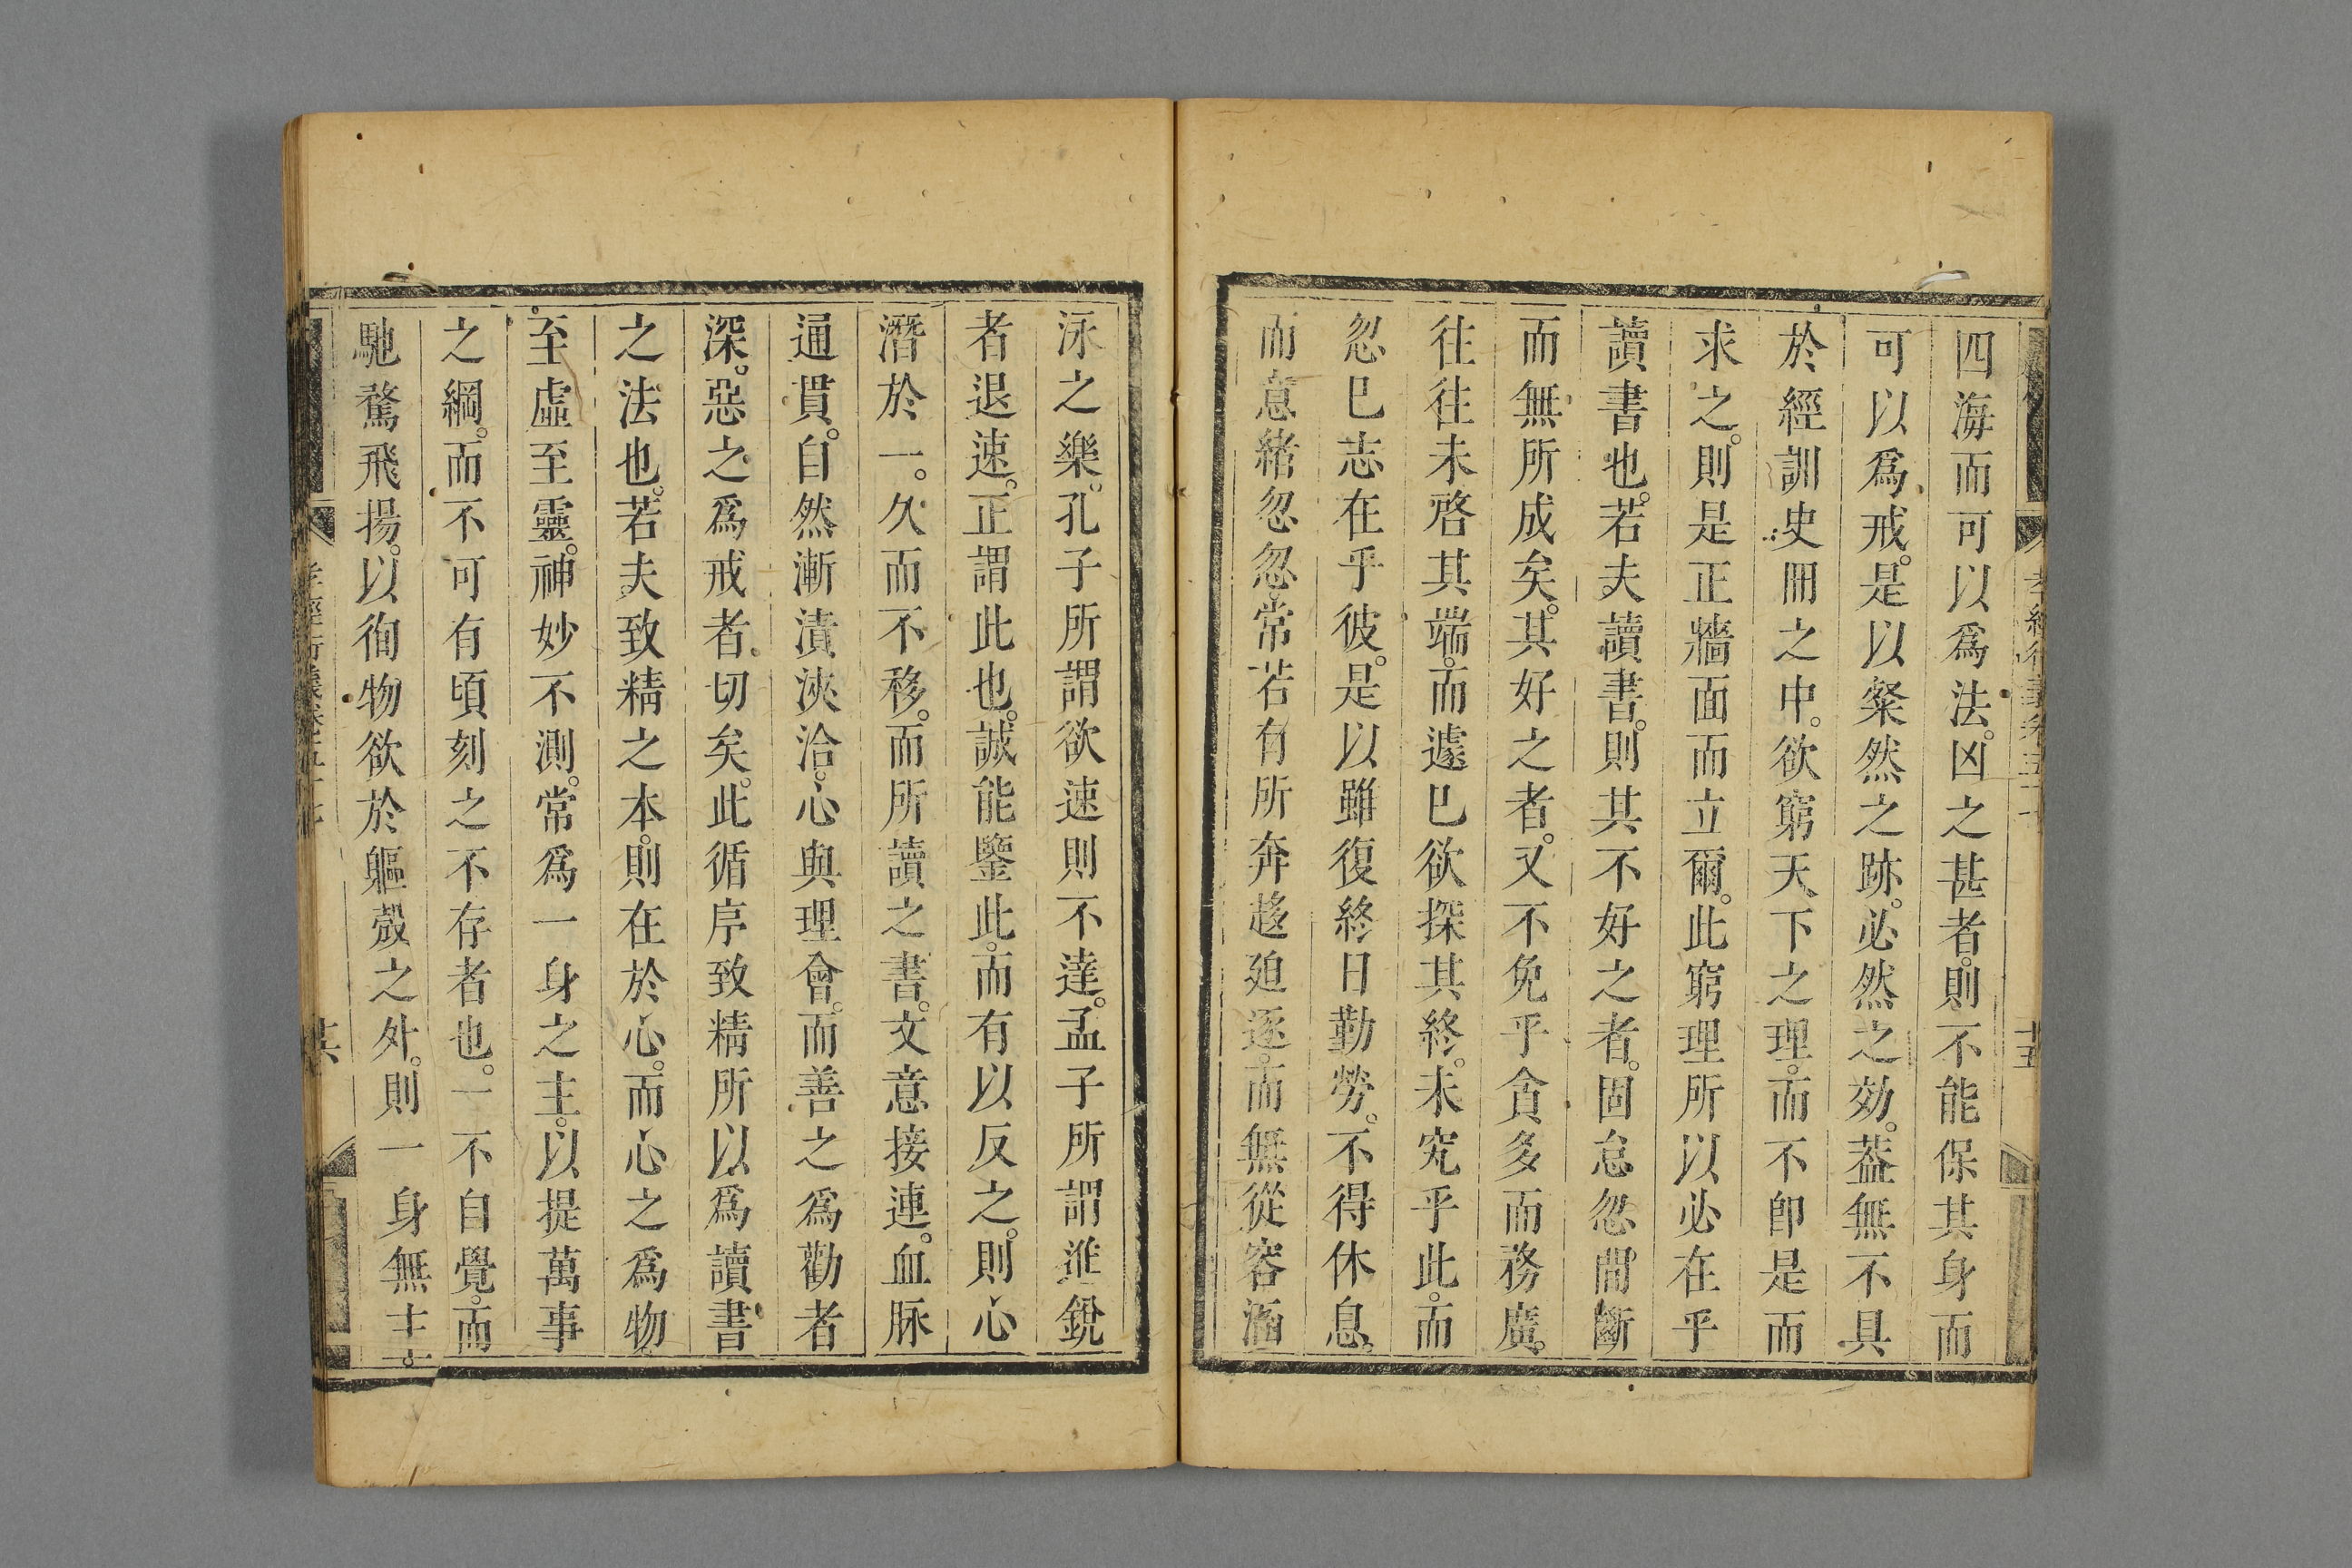 四海而可以爲法。凶之甚者。則不能保其身而
可以爲戒。是以粲然之跡。必然之効。葢無不具
於經訓史冊之中。欲窮天下之理。而不卽是而
求之。則是正牆面而立爾。此窮理所以必在乎
讀書也。若夫讀書。則其不好之者。固怠忽閒斷
而無所成矣。其好之者。又不免乎貪多而務廣。
往往未啓其端。而遽已欲探其終。未究乎此。而
忽已志在乎彼。是以雖復終日勤勞。不得休息。
而意緒忽忽。常若有所奔趨廹逐。而無從容涵
泳之樂。孔子所謂欲速則不達。孟子所謂進銳
者退速。正謂此也。誠能鑒此。而有以反之。則心
潛於一。久而不移。而所讀之書。文意接連。血脉
通貫。自然漸漬浹洽。心與理會。而善之爲勸者
深。惡之爲戒者切矣。此循序致精所以爲讀書
之法也。若夫致精之本。則在於心。而心之爲物
至虛至靈。神妙不測。常爲一身之主。以提萬事
之綱。而不可有頃刻之不存者也。一不自覺。而
馳騖飛揚。以徇物欲於軀殼之外。則一身無主。